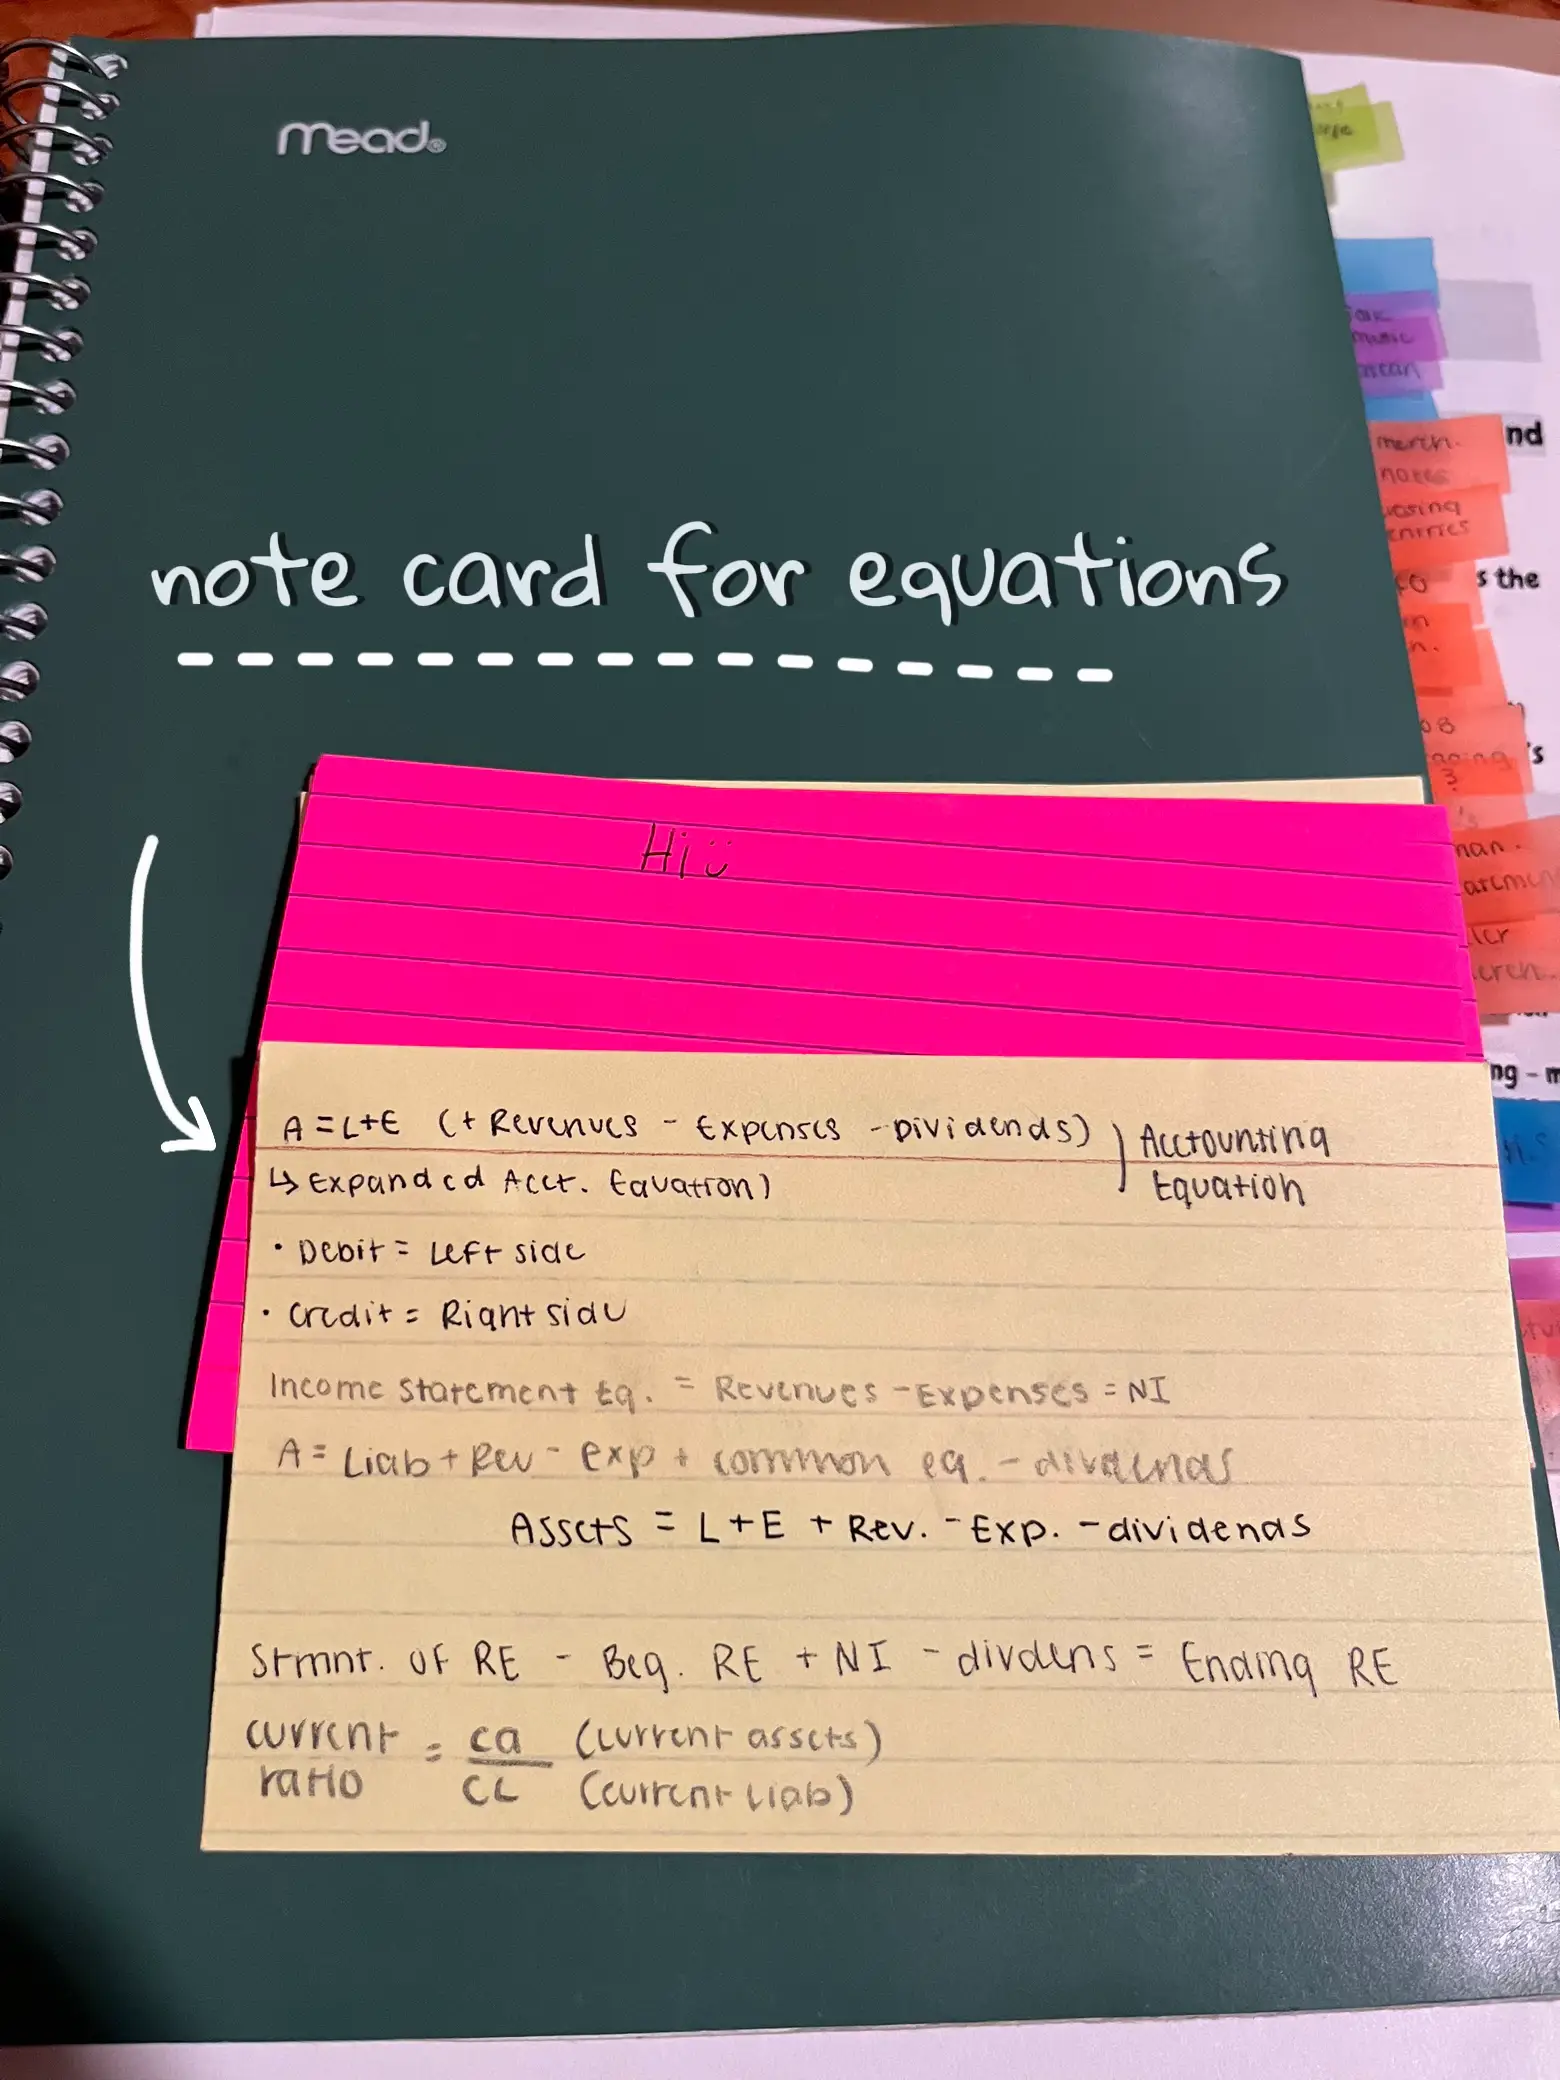 mead®
note card for equations
nd
s the
's
ng - m
music
scan
merch.
notes
entries
Hi ü
A = L+E (+ Revenues - Expenses - Dividends) ) Accounting
↳ Expanded Acct. Equation) Equation
• Debit = Left side
• Credit = Right side
Income Statement Eq. = Revenues - Expenses = NI
A = Liab + Rev - exp + common eq. - dividends
Assets = L + E + Rev. - Exp. - dividends
Stmnt. of RE - Beg. RE + NI - dividens = Ending RE
current = ca (current assets)
ratio CL (current liab)